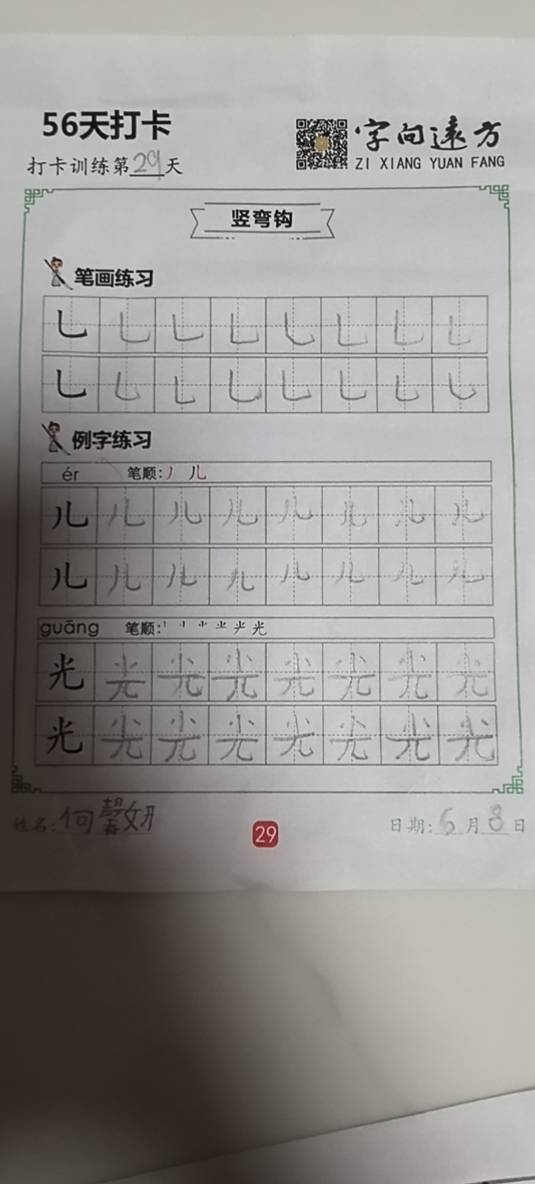 56天打卡
字向远方
打卡训练第29天
ZI XIANG YUAN FANG
竖弯钩
笔画练习
乚 乚 乚 乚 乚 乚 乚 乚
乚 乚 乚 乚 乚 乚 乚 乚
例字练习
ér 笔顺:丿 儿
儿 儿 儿 儿 儿 儿 儿 儿
儿 儿 儿 儿 儿 儿 儿 儿
guāng 笔顺:
光
光 光 光 光 光 光 光 光
光 光 光 光 光 光 光 光
姓名:何馨妍
29
日期:6月8日